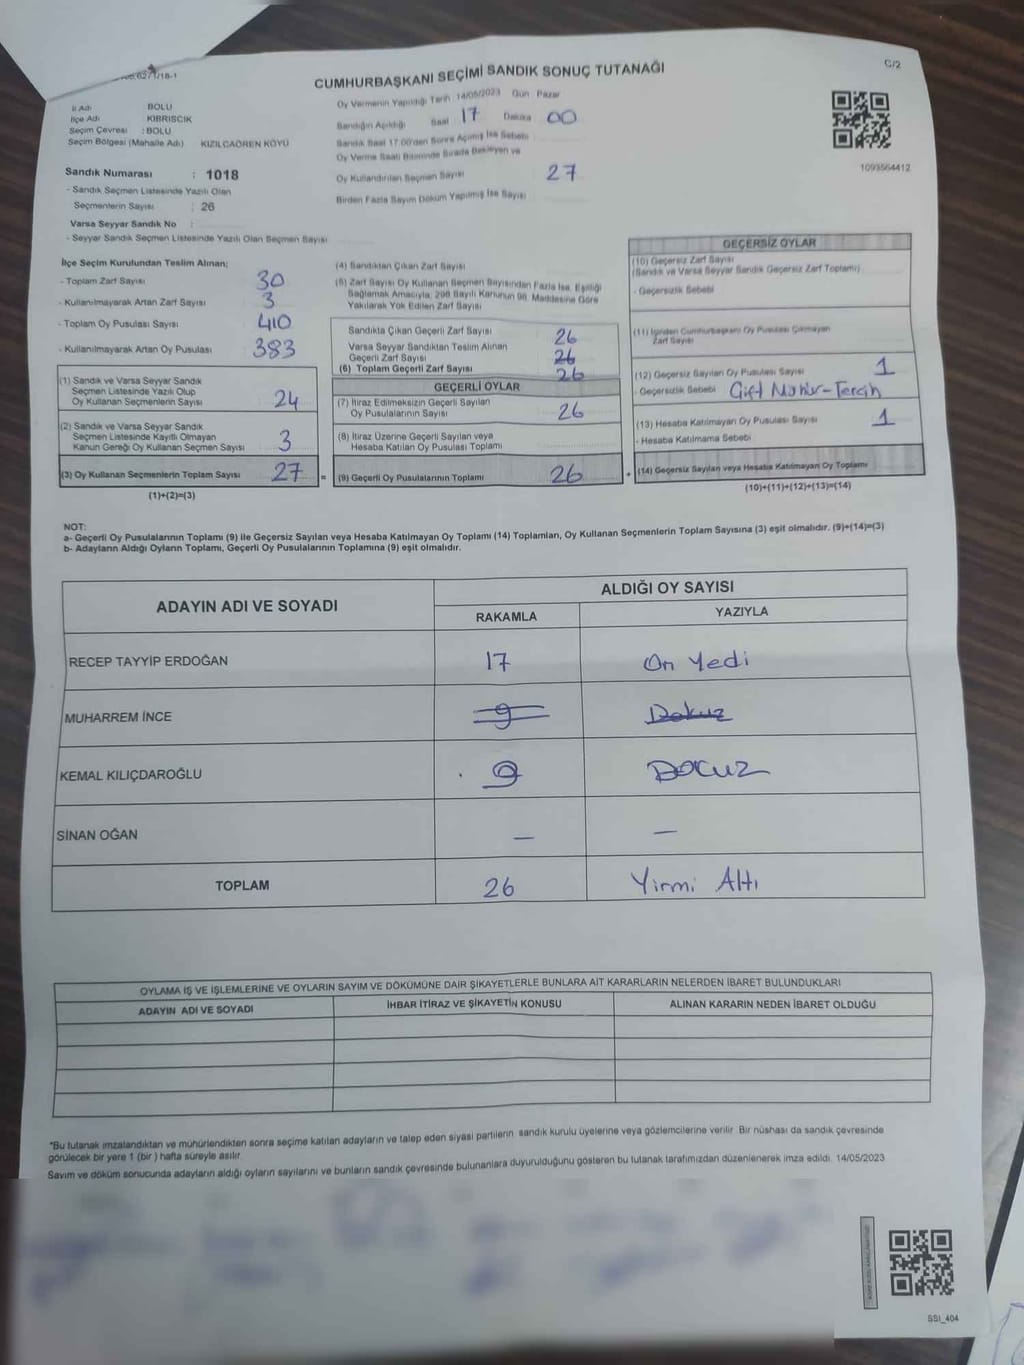 CUMHURBAŞKANI SEÇİMİ SANDIK SONUÇ TUTANAĞI
C/2
İl Adı BOLU
İlçe Adı KIBRISCIK
Seçim Çevresi : BOLU
Seçim Bölgesi (Mahalle Adı) KIZILCAÖREN KÖYÜ
Oy Vermenin Yapıldığı Tarih 14/05/2023 Gün Pazar
Sandığın Açıldığı Saat 17 Dakika 00
Sandık Saat 17.00'den Sonra Açımış İse Sebebi
Oy Verme Saati Bitiminde Sırada Bekleyen ve
Oy Kullandırılan Seçmen Sayısı 27
Birden Fazla Sayım Döküm Yapılmış İse Sayısı
1093564412
Sandık Numarası : 1018
- Sandık Seçmen Listesinde Yazılı Olan
Seçmenlerin Sayısı : 26
Varsa Seyyar Sandık No :
- Seyyar Sandık Seçmen Listesinde Yazılı Olan Seçmen Sayısı
İlçe Seçim Kurulundan Teslim Alınan;
- Toplam Zarf Sayısı 30
- Kullanılmayarak Artan Zarf Sayısı 3
- Toplam Oy Pusulası Sayısı 410
- Kullanılmayarak Artan Oy Pusulası 383
(1) Sandık ve Varsa Seyyar Sandık
Seçmen Listesinde Yazılı Olup
Oy Kullanan Seçmenlerin Sayısı 24
(2) Sandık ve Varsa Seyyar Sandık
Seçmen Listesinde Kayıtlı Olmayan
Kanun Gereği Oy Kullanan Seçmen Sayısı 3
(3) Oy Kullanan Seçmenlerin Toplam Sayısı 27 =
(1)+(2)=(3)
(4) Sandıktan Çıkan Zarf Sayısı
(5) Zarf Sayısı Oy Kullanan Seçmen Sayısından Fazla İse, Eşitliği
Sağlamak Amacıyla, 298 Sayılı Kanunun 98. Maddesine Göre
Yakılarak Yok Edilen Zarf Sayısı
Sandıkta Çıkan Geçerli Zarf Sayısı 26
Varsa Seyyar Sandıktan Teslim Alınan
Geçerli Zarf Sayısı 26
(6) Toplam Geçerli Zarf Sayısı 26
GEÇERLİ OYLAR
(7) İtiraz Edilmeksizin Geçerli Sayılan
Oy Pusulalarının Sayısı 26
(8) İtiraz Üzerine Geçerli Sayılan veya
Hesaba Katılan Oy Pusulası Toplamı
(9) Geçerli Oy Pusulalarının Toplamı 26 +
GEÇERSİZ OYLAR
(10) Geçersiz Zarf Sayısı
(Sandık ve Varsa Seyyar Sandık Geçersiz Zarf Toplamı)
- Geçersizlik Sebebi
(11) İçinden Cumhurbaşkanı Oy Pusulası Çıkmayan
Zarf Sayısı
(12) Geçersiz Sayılan Oy Pusulası Sayısı 1
- Geçersizlik Sebebi Çift Mühür-Tercih
(13) Hesaba Katılmayan Oy Pusulası Sayısı 1
- Hesaba Katılmama Sebebi
(14) Geçersiz Sayılan veya Hesaba Katılmayan Oy Toplamı
(10)+(11)+(12)+(13)=(14)
NOT:
a- Geçerli Oy Pusulalarının Toplamı (9) ile Geçersiz Sayılan veya Hesaba Katılmayan Oy Toplamı (14) Toplamları, Oy Kullanan Seçmenlerin Toplam Sayısına (3) eşit olmalıdır. (9)+(14)=(3)
b- Adayların Aldığı Oyların Toplamı, Geçerli Oy Pusulalarının Toplamına (9) eşit olmalıdır.
ADAYIN ADI VE SOYADI
ALDIĞI OY SAYISI
RAKAMLA YAZIYLA
RECEP TAYYİP ERDOĞAN 17 On Yedi
MUHARREM İNCE 9 Dokuz
KEMAL KILIÇDAROĞLU 9 DOCUZ
SİNAN OĞAN — —
TOPLAM 26 Yirmi Altı
OYLAMA İŞ VE İŞLEMLERİNE VE OYLARIN SAYIM VE DÖKÜMÜNE DAİR ŞİKAYETLERLE BUNLARA AİT KARARLARIN NELERDEN İBARET BULUNDUKLARI
ADAYIN ADI VE SOYADI İHBAR İTİRAZ VE ŞİKAYETİN KONUSU ALINAN KARARIN NEDEN İBARET OLDUĞU
*Bu tutanak imzalandıktan ve mühürlendikten sonra seçime katılan adayların ve talep eden siyasi partilerin sandık kurulu üyelerine veya gözlemcilerine verilir. Bir nüshası da sandık çevresinde
görülecek bir yere 1 (bir) hafta süreyle asılır.
Sayım ve döküm sonucunda adayların aldığı oyların sayılarını ve bunların sandık çevresinde bulunanlara duyurulduğunu gösteren bu tutanak tarafımızdan düzenlenerek imza edildi. 14/05/2023
SSI_404